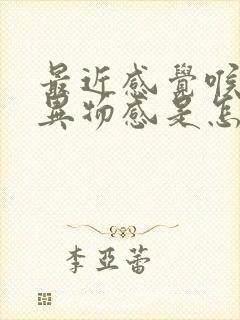 最近感覺喉
異物感是怎
李亞蕾